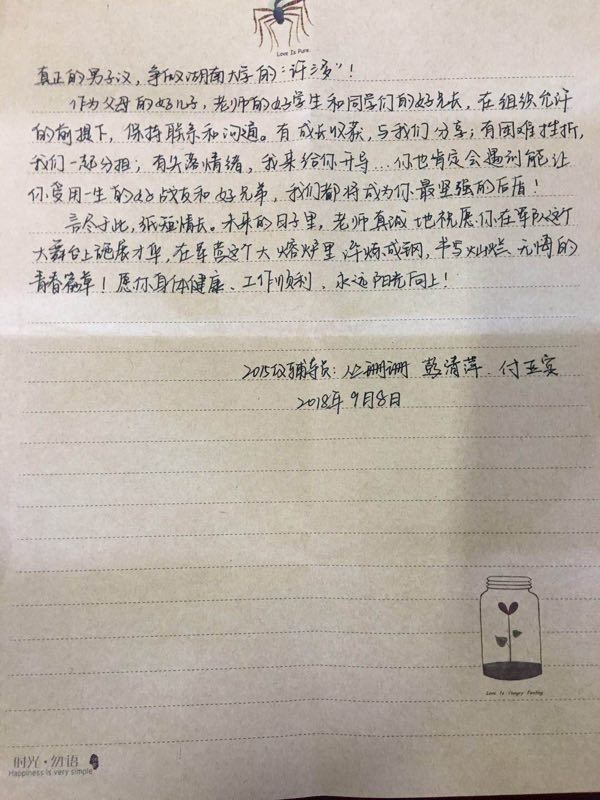 Love Is Pure.
真正的男子汉，争做湖南大学的"许三多"！
作为父母的好儿子，老师的好学生和同学们的好兄长，在组织允许
的前提下，保持联系和沟通。有成长收获，与我们分享；有困难挫折，
我们一起分担；有失落情绪，我来给你开导…你也肯定会遇到能让
你受用一生的好战友和好兄弟，我们都将成为你最坚强的后盾！
言尽于此，纸短情长。未来的日子里，老师真诚地祝愿你在军队这个
大舞台上施展才华，在军营这个大熔炉里淬炼成钢，书写灿烂、无悔的
青春篇章！愿你身体健康、工作顺利、永远阳光向上！
2015级辅导员：丛珊珊 彭清萍 付玉实
2018年9月8日
Love Is Hungry Feeling
时光·勿语
Happiness is very simple